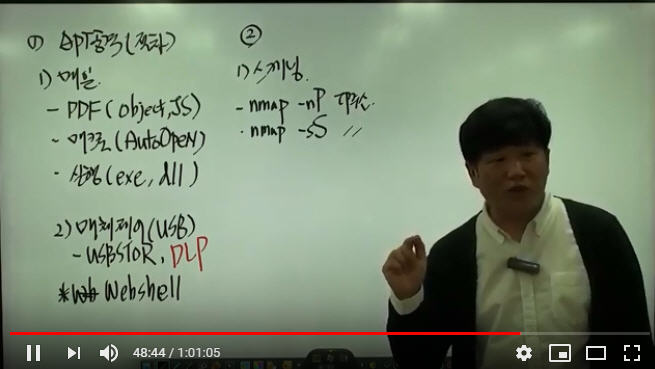 ① APT공격(
1) 메일.
- PDF(object, JS)
- 매크로(AutoOpen)
- 실행(exe, dll)
2) 매체제어(USB)
- USBSTOR, DLP
* Webshell
②
1) 스캐닝.
- nmap -
- nmap -sS 〃
48:44 / 1:01:05